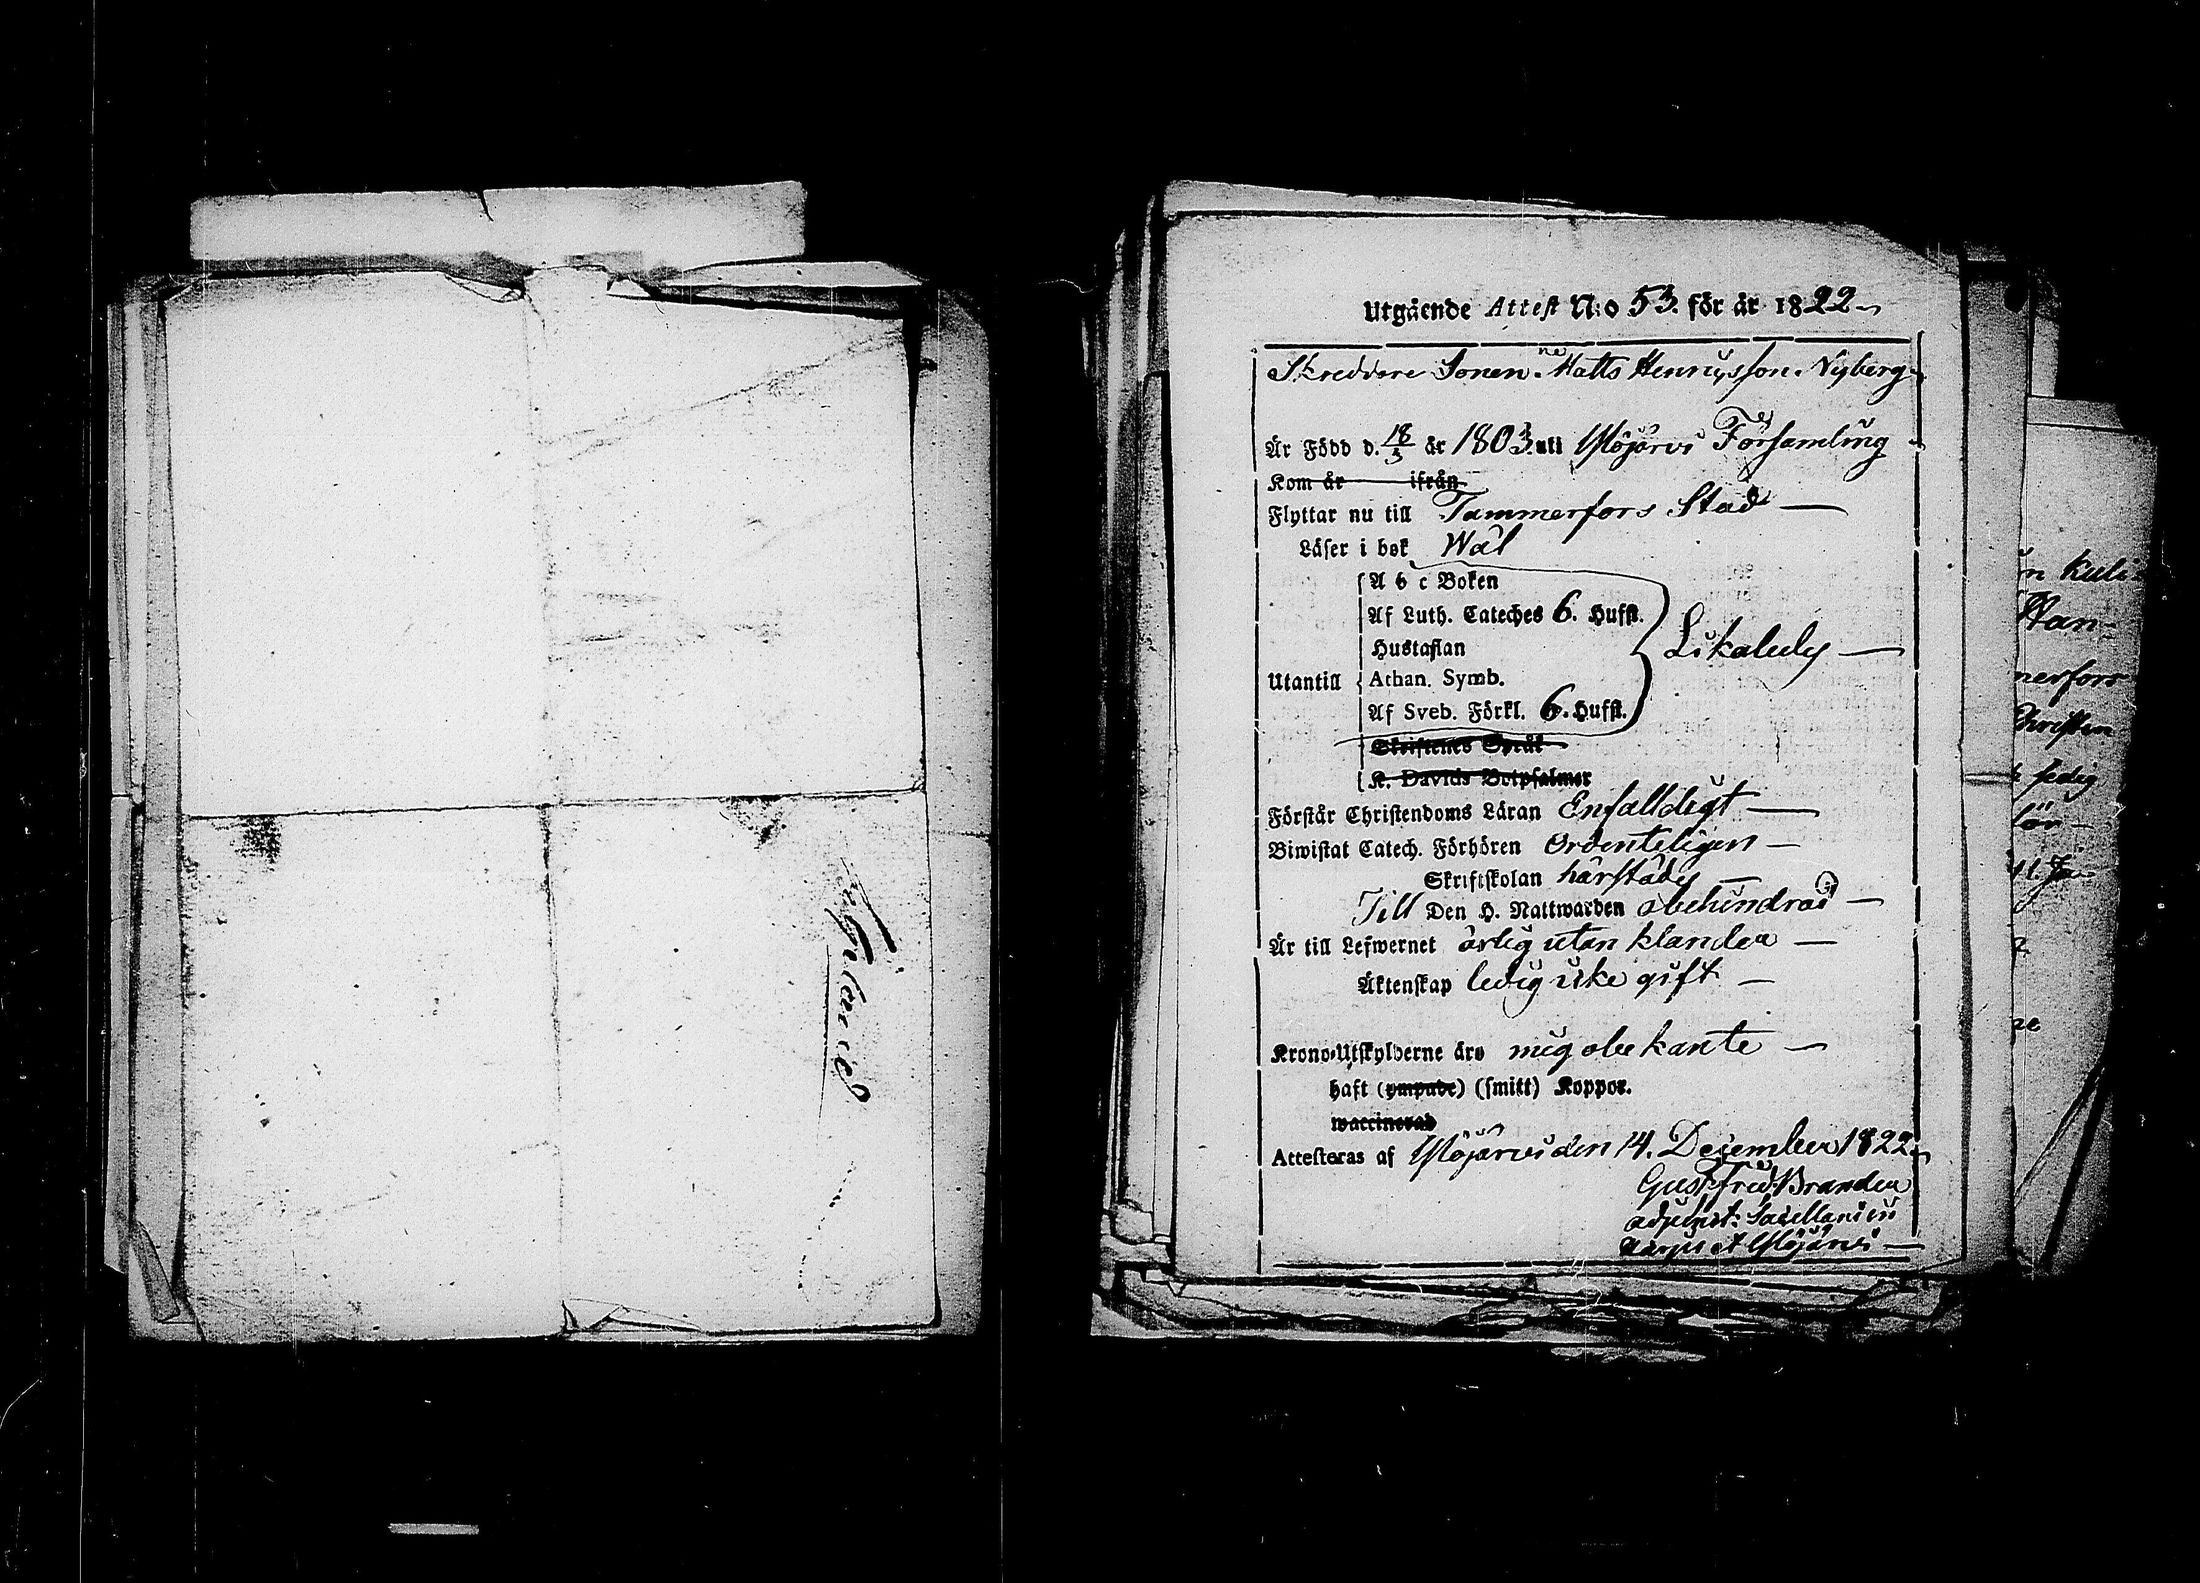 Utgående Attest N:o 53. för år 1822
Skreddare Sonen Matts Henricsson Nyberg
Är Född d. 18/5 år 1803. uti Ylöjärvi Församling
Kom år ifrån
Flyttar nu till Tammerfors Stad
Läser i bok Wäl
A b c Boken
Af Luth. Cateches 6. Hufst.
Hustaflan
Likaledes
Utantill Athan. Symb.
Af Sveb. Förkl. 6. Hufst.
Skriftenes Språk
K. Davids Botpsalmer
Förstår Christendoms Läran Enfalldigt
Biwistat Catech. Förhören Ordenteligen
Skriftskolan härstädes
Till Den H. Nattwarden obehindrad
Är till Lefwernet ärlig utan klander
Äktenskap ledig icke gift
Krono-Utskylderne äro mig obekante
haft (ympade) (smitt) Koppor.
waccinerad
Attesteras af Ylöjärvi den 14. December 1822
Gust. Fred. Brander
adjunct. Sacellani in
Ylöjärvi
n
Han-
nerfors
Christen
ledig
för